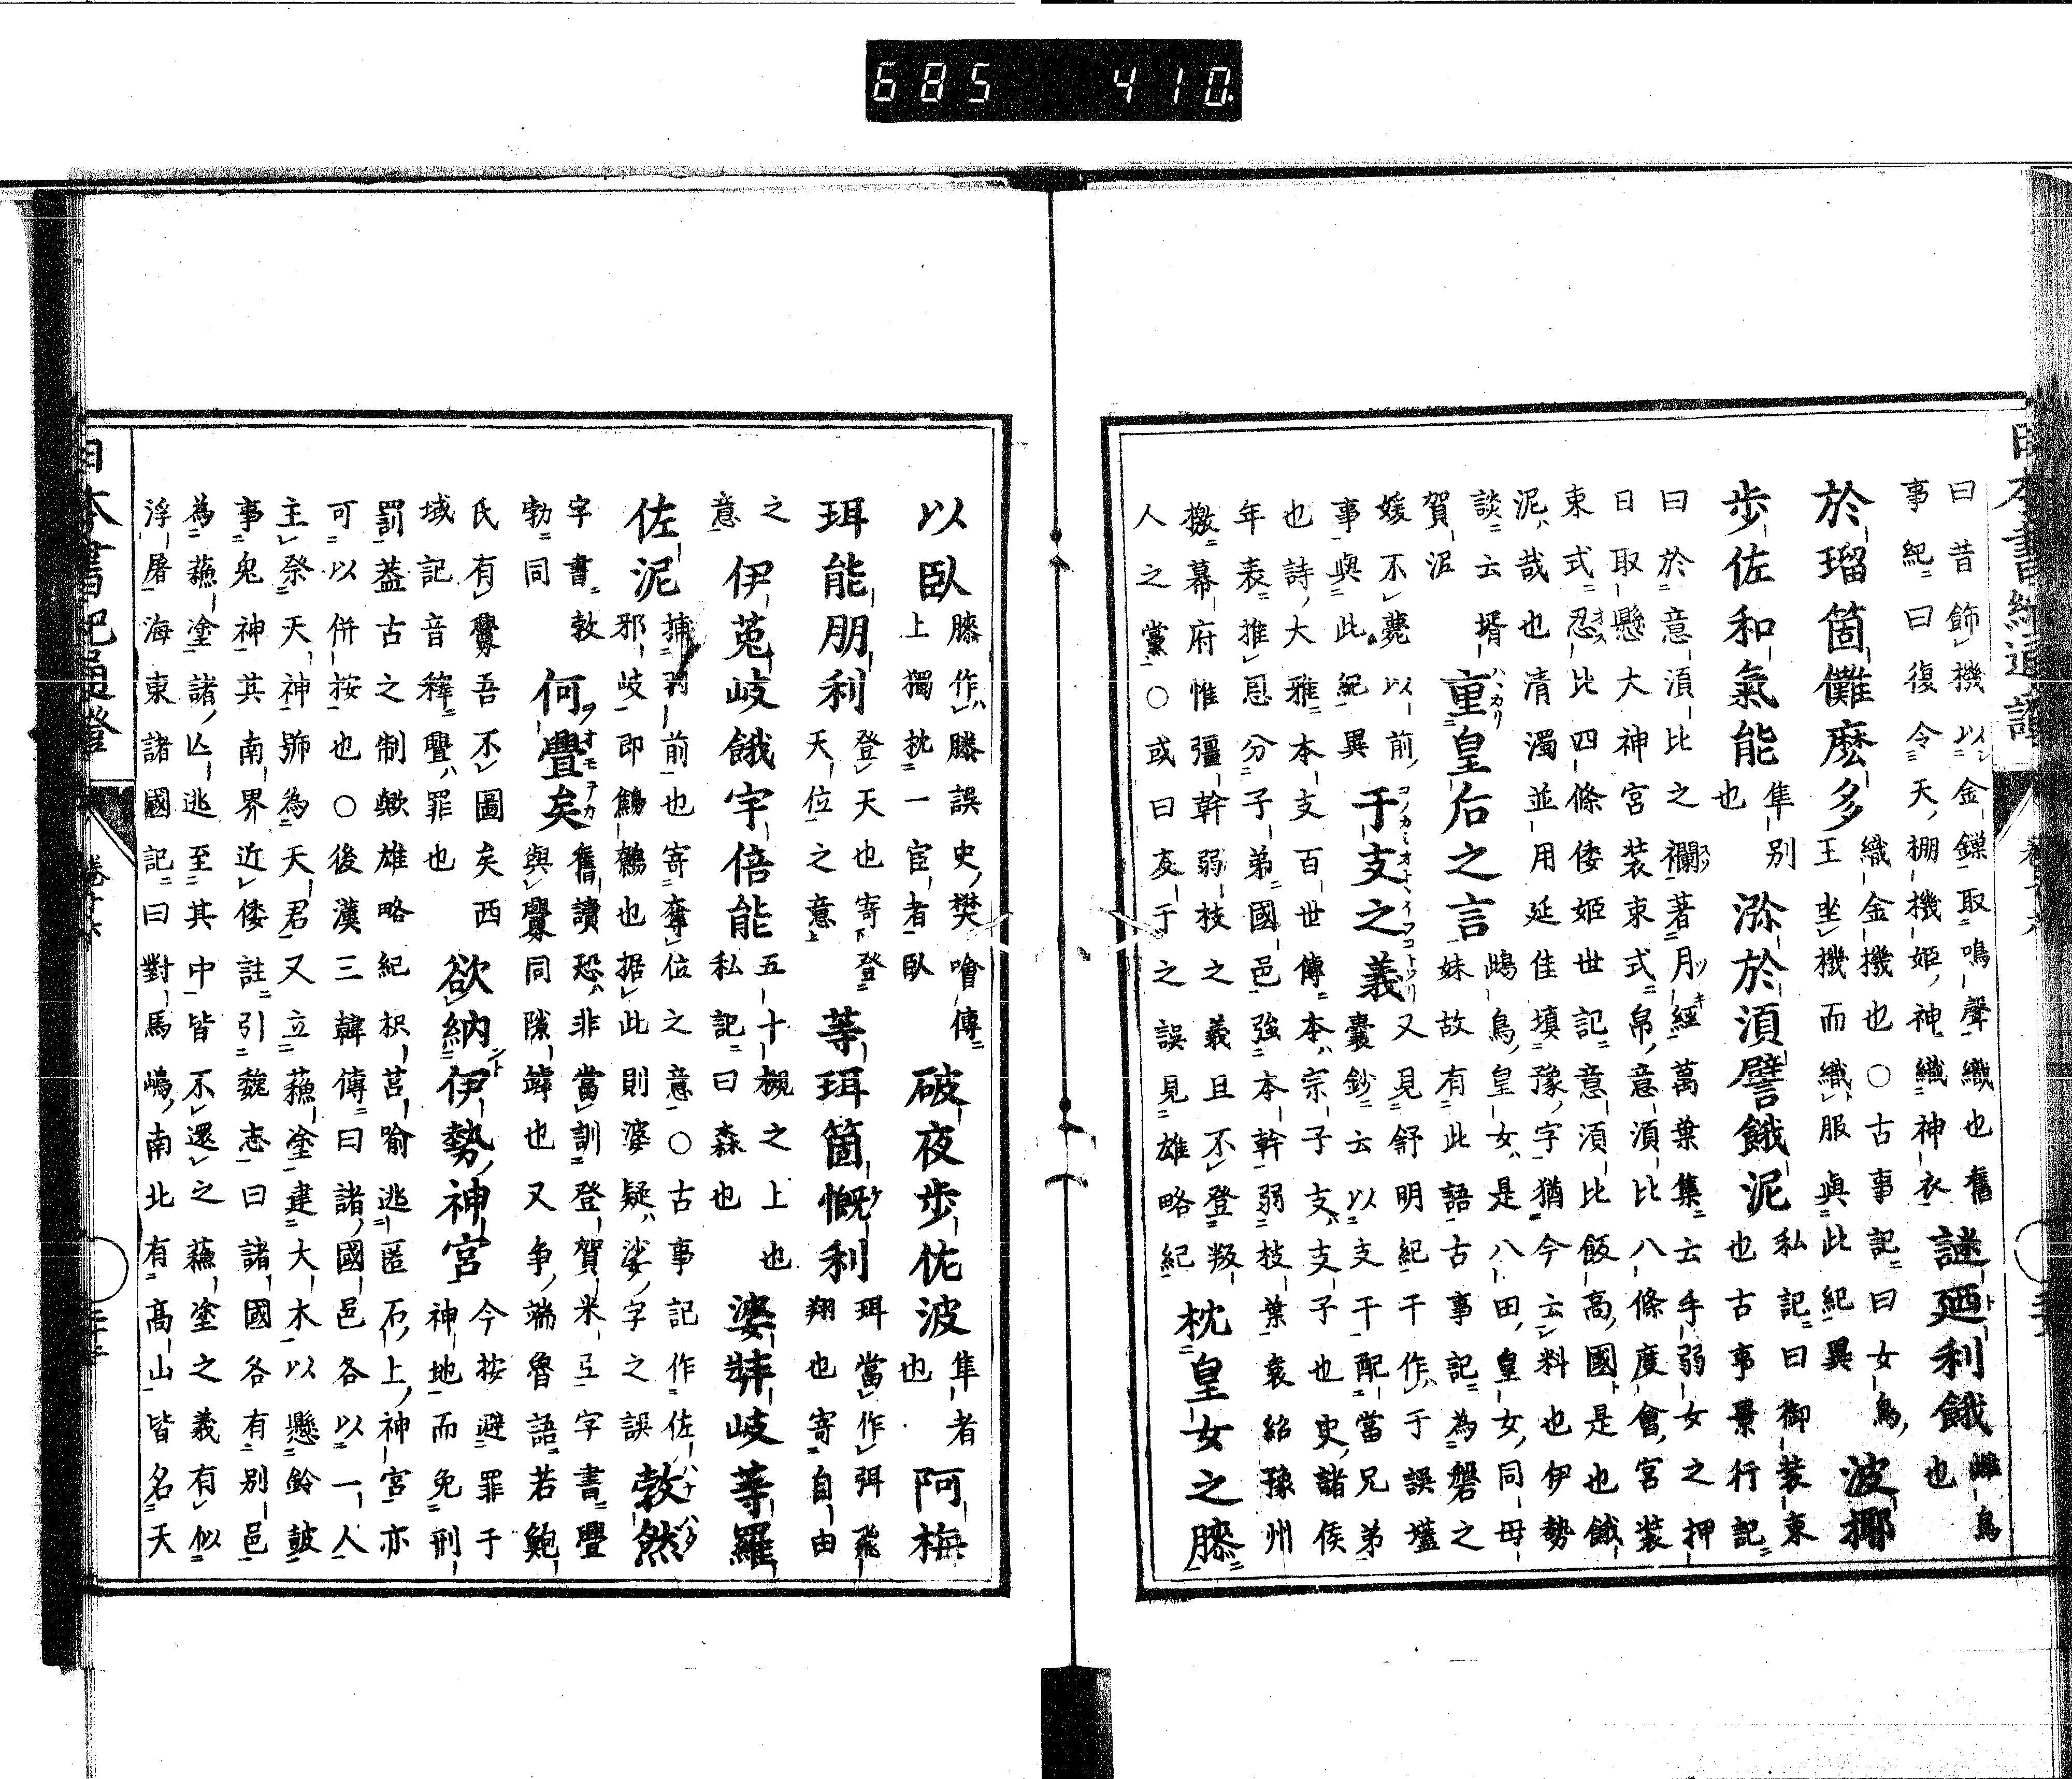 685 410
曰昔飾機以金鏁取鳴聲織也舊
謎廼利餓
雌鳥
也
事紀曰復令天棚機姫神織神衣
於瑠箇儺麼多
織金機也○古事記曰女鳥
王坐機而織服與此紀異
波揶
步佐和氣能
隼別
也
滁於湏譬餓泥
私記曰御装束
也古事景行記
曰於意湏比之襴著月經萬葉集云手弱女之押
日取懸大神宮装束式帛意湏比八條度會宮装
束式忍比四條倭姫世記意湏比飯高國是也餓
泥哉也清濁並用延佳填豫字猶今云料也伊勢
談云壻
賀泥
重皇后之言
鴟鳥皇女是八田皇女同母
妹故有此語古事記為磐之
媛不薨以前
事與此紀異
于支之義
又見舒明紀干作于誤壒
囊鈔云以支干配當兄弟
也詩大雅本支百世傳本宗子支支子也史諸侯
年表推恩分子弟國邑強本幹弱枝葉袁紹豫州
檄幕府惟彊幹弱枝之義且不登叛
人之黨○或曰友于之誤見雄略紀
枕皇女之膝
以臥
膝作滕誤史樊噲傳
上獨枕一宦者臥
破夜步佐波
隼者
也
阿梅
珥能朋利
登天也寄登
天位之意
等珥箇慨利
珥當作弭飛
翔也寄自由
之
意
伊菟岐餓宇倍能
五十槻之上也
私記曰森也
婆弉岐等羅
佐泥
捕前也寄奪位之意○古事記作佐
邪岐即鷦鷯也据此則婆疑娑字之誤
敦然
字書敦
勃同
何亹矣
舊讀恐非當訓登賀米弖字書亹
與釁同隙罅也又争端魯語若鮑
氏有釁吾不圖矣西
域記音釋亹罪也
欲納伊勢神宮
今按避罪于
神地而免刑
罰蓋古之制歟雄略紀枳莒喻逃匿石上神宮亦
可以併按也○後漢三韓傳曰諸國邑各以一人
主祭天神號為天君又立蘓塗建大木以懸鈴皷
事鬼神其南界近倭註引魏志曰諸國各有別邑
為蘓塗諸亾逃至其中皆不還之蘓塗之義有似
浮屠海東諸國記曰對馬嶋南北有高山皆名天
日本書紀通證